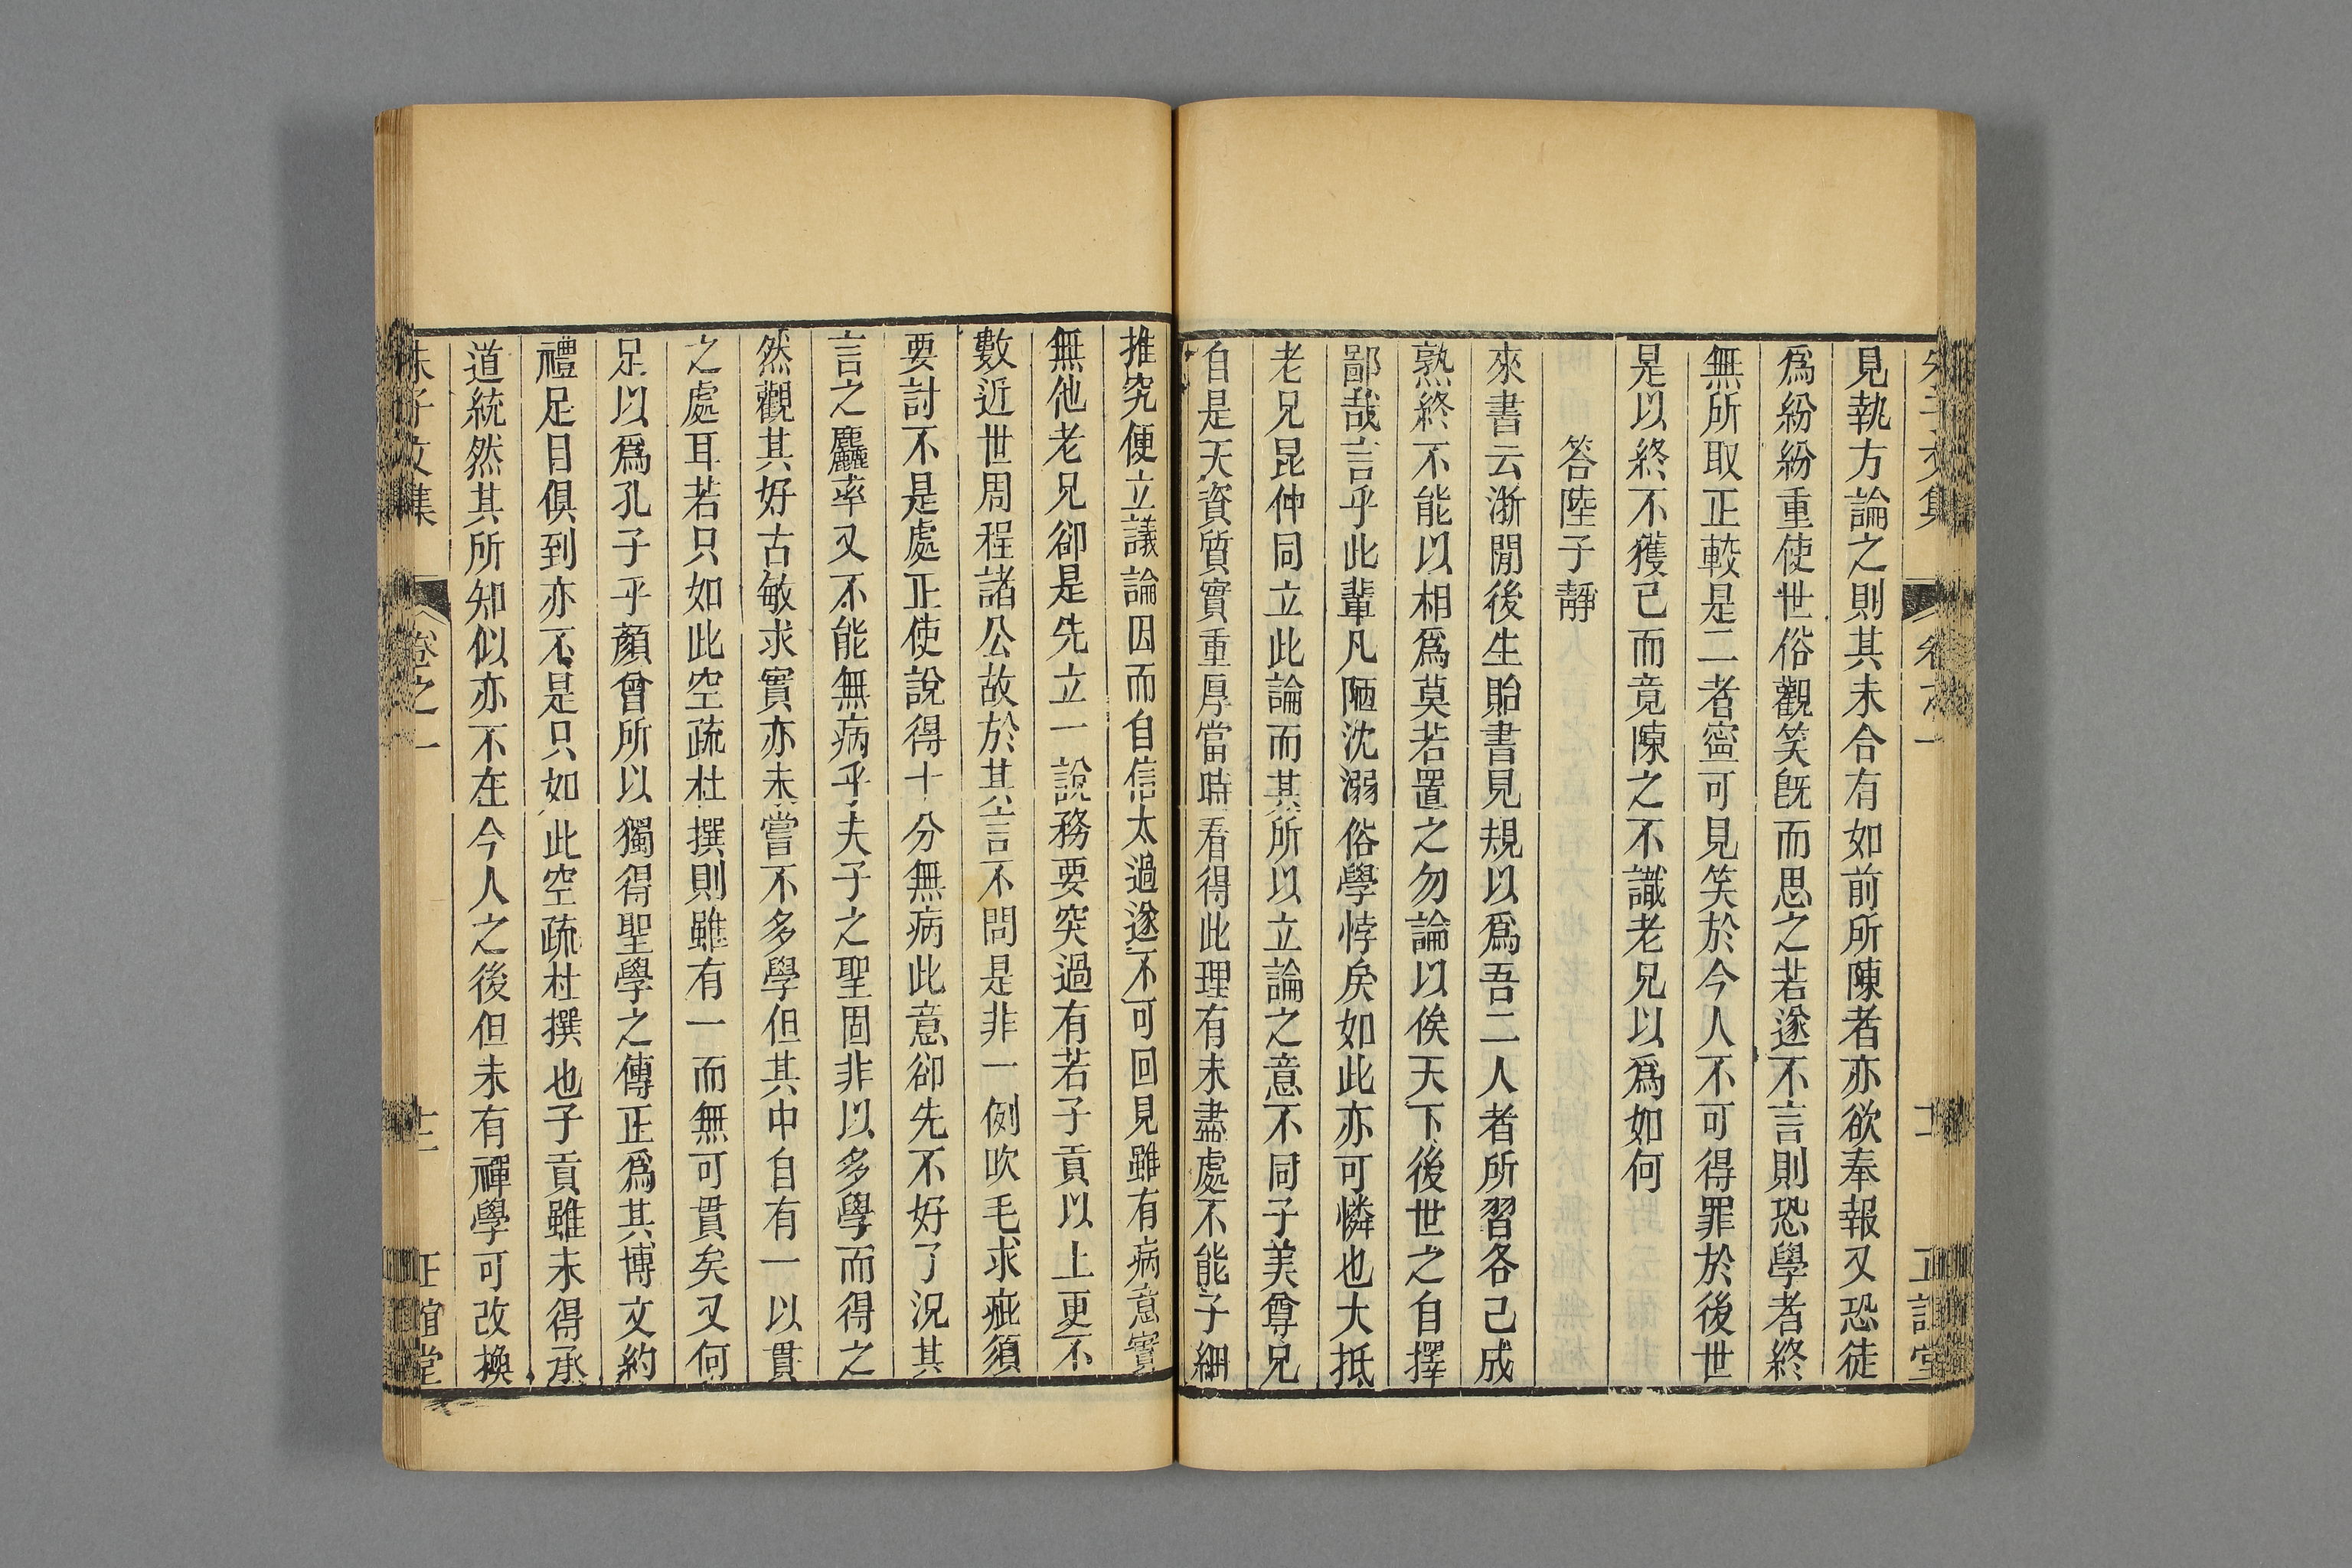 朱子文集 卷之一 十一 正誼堂
見執方論之則其未合有如前所陳者亦欲奉報又恐徒
爲紛紛重使世俗觀笑旣而思之若遂不言則恐學者終
無所取正較是二者寧可見笑於今人不可得罪於後世
是以終不獲已而竟陳之不識老兄以爲如何
答陸子靜
來書云浙閒後生貽書見規以爲吾二人者所習各己成
熟終不能以相爲莫若置之勿論以俟天下後世之自擇
鄙哉言乎此輩凡陋沈溺俗學悖戾如此亦可憐也大抵
老兄昆仲同立此論而其所以立論之意不同子美尊兄
自是天資質實重厚當時看得此理有未盡處不能子細
推究便立議論因而自信太過遂不可回見雖有病意實
無他老兄卻是先立一說務要突過有若子貢以上更不
數近世周程諸公故於其言不問是非一例吹毛求疵須
要討不是處正使說得十分無病此意卻先不好了況其
言之麤率又不能無病乎夫子之聖固非以多學而得之
然觀其好古敏求實亦未嘗不多學但其中自有一以貫
之處耳若只如此空疏杜撰則雖有一而無可貫矣又何
足以爲孔子乎顏曾所以獨得聖學之傳正爲其博文約
禮足目俱到亦不是只如此空疏杜撰也子貢雖未得承
道統然其所知似亦不在今人之後但未有禪學可改換
朱子文集 卷之一 十二 正誼堂